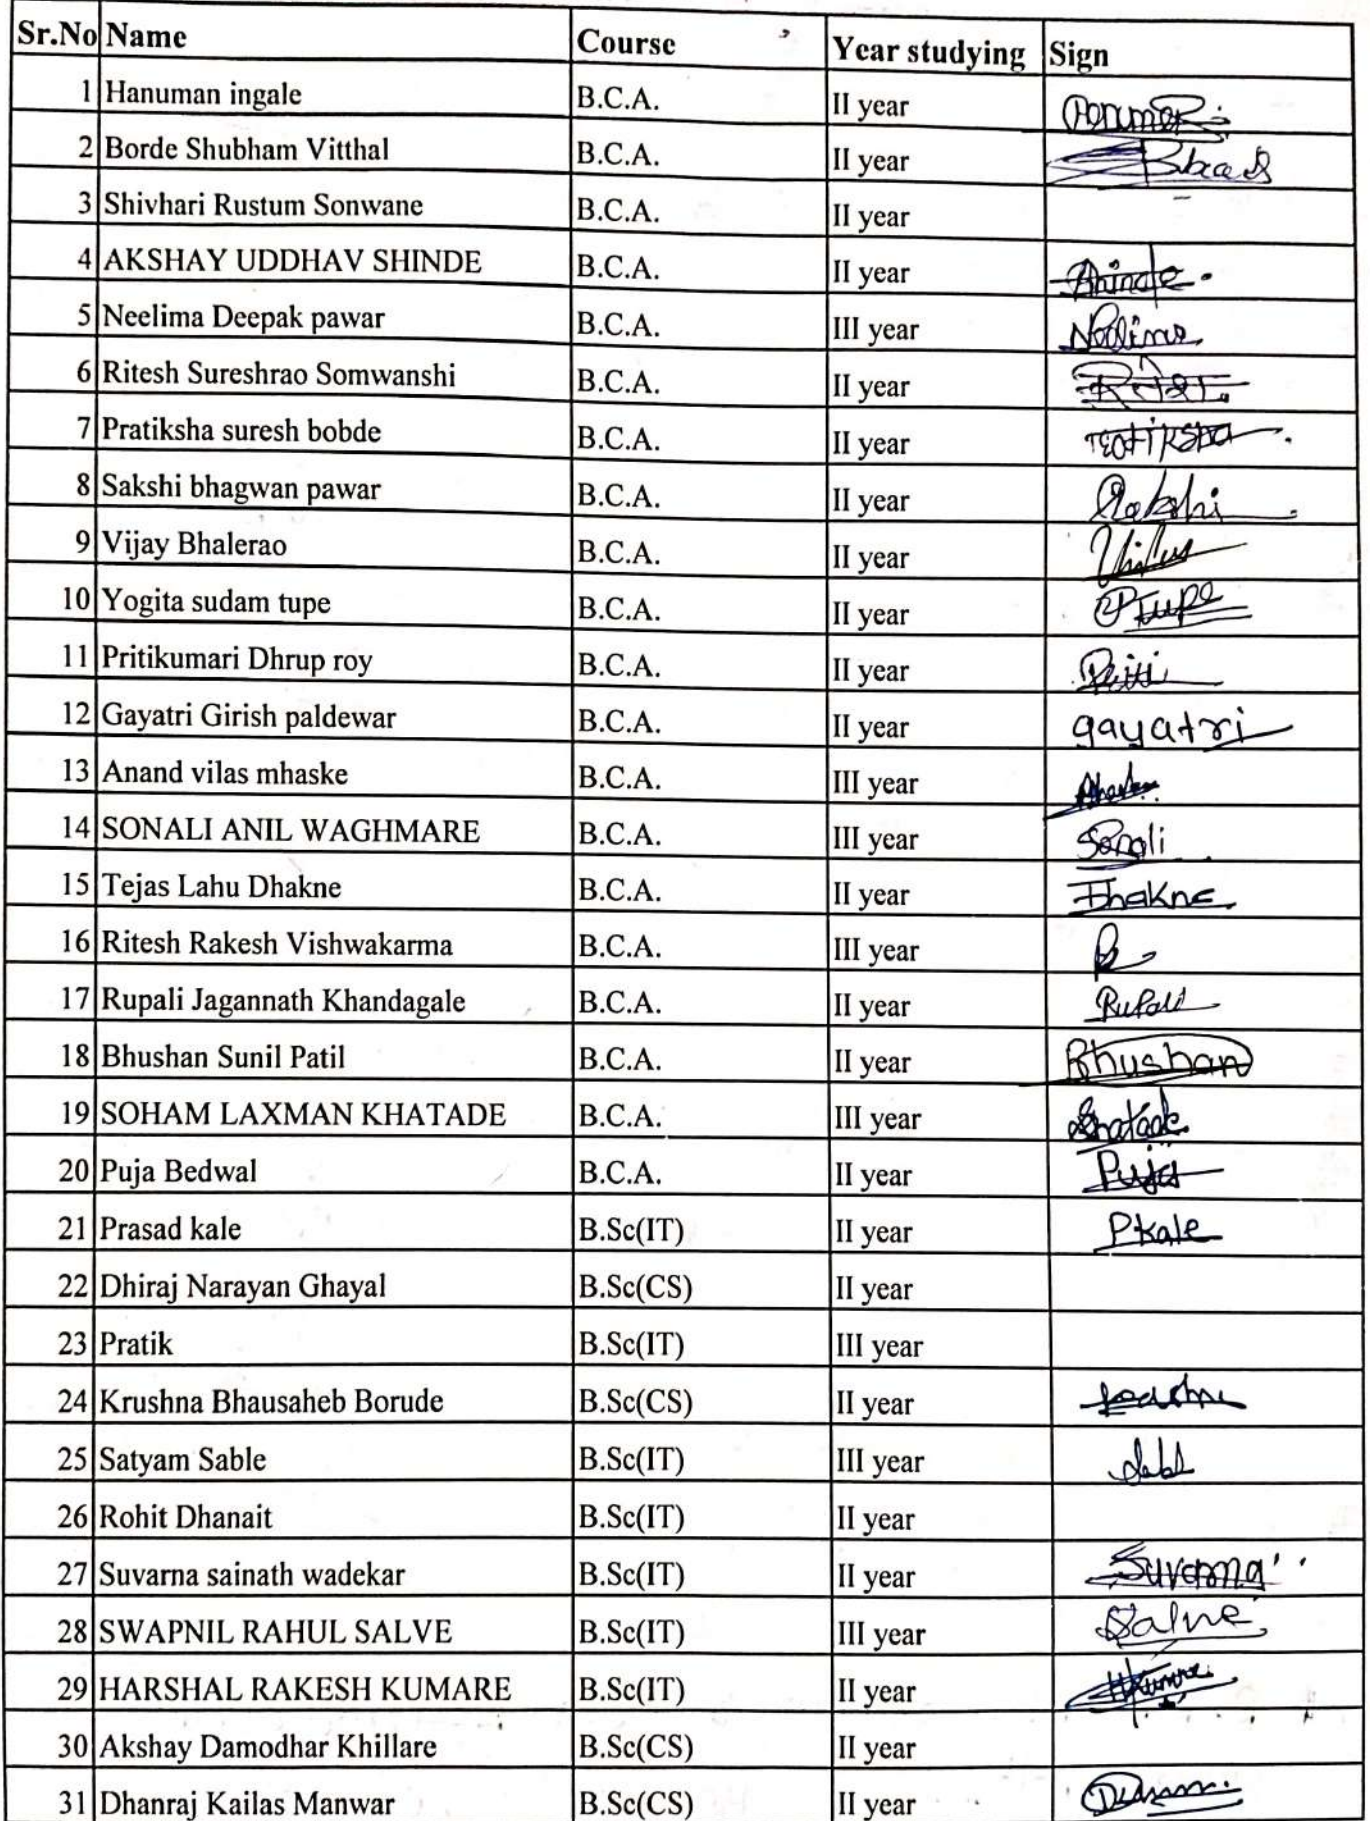 Sr.No Name Course Year studying Sign
1 Hanuman ingale B.C.A. II year
2 Borde Shubham Vitthal B.C.A. II year
3 Shivhari Rustum Sonwane B.C.A. II year
4 AKSHAY UDDHAV SHINDE B.C.A. II year
5 Neelima Deepak pawar B.C.A. III year Neelima
6 Ritesh Sureshrao Somwanshi B.C.A. II year
7 Pratiksha suresh bobde B.C.A. II year
8 Sakshi bhagwan pawar B.C.A. II year Sakshi
9 Vijay Bhalerao B.C.A. II year
10 Yogita sudam tupe B.C.A. II year Tupe
11 Pritikumari Dhrup roy B.C.A. II year Priti
12 Gayatri Girish paldewar B.C.A. II year gayatri
13 Anand vilas mhaske B.C.A. III year
14 SONALI ANIL WAGHMARE B.C.A. III year Sonali
15 Tejas Lahu Dhakne B.C.A. II year
16 Ritesh Rakesh Vishwakarma B.C.A. III year
17 Rupali Jagannath Khandagale B.C.A. II year Rupali
18 Bhushan Sunil Patil B.C.A. II year Bhushan
19 SOHAM LAXMAN KHATADE B.C.A. III year
20 Puja Bedwal B.C.A. II year Puja
21 Prasad kale B.Sc(IT) II year Pkale
22 Dhiraj Narayan Ghayal B.Sc(CS) II year
23 Pratik B.Sc(IT) III year
24 Krushna Bhausaheb Borude B.Sc(CS) II year
25 Satyam Sable B.Sc(IT) III year
26 Rohit Dhanait B.Sc(IT) II year
27 Suvarna sainath wadekar B.Sc(IT) II year Suvarna
28 SWAPNIL RAHUL SALVE B.Sc(IT) III year Salve
29 HARSHAL RAKESH KUMARE B.Sc(IT) II year
30 Akshay Damodhar Khillare B.Sc(CS) II year
31 Dhanraj Kailas Manwar B.Sc(CS) II year